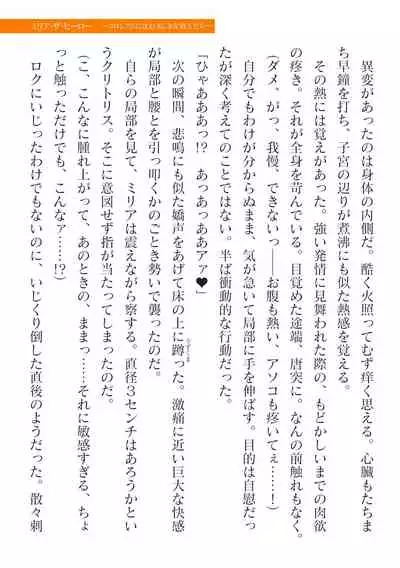 ミリア・ザ・ヒーロー
異変があったのは身体の内側だ。酷く火照ってむず痒く思える。心臓もたちま
ち早鐘を打ち、子宮の辺りが煮沸にも似た熱感を覚える。
その熱には覚えがあった。強い発情に見舞われた際の、もどかしいまでの肉欲
の疼き。それが全身を苛んでいる。目覚めた途端、唐突に。なんの前触れもなく。
(ダメ、がっ、我慢、できないっ――お腹も熱い、アソコも疼いてぇ……！)
自分でもわけが分からぬまま、気が急いて局部に手を伸ばす。目的は自慰だっ
たが深く考えてのことではない。半ば衝動的な行動だった。
「ひゃあああっ!?　あっあっああアァ♥」
次の瞬間、悲鳴にも似た嬌声をあげて床の上に蹲った。激痛に近い巨大な快感
が局部と腰とを引っ叩くかのごとき勢いで襲ったのだ。
自らの局部を見て、ミリアは震えながら察する。直径３センチはあろうかとい
うクリトリス。そこに意図せず指が当たってしまったのだ。
(こ、こんなに腫れ上がって、あのときの、ままっ……それに敏感すぎる、ちょ
っと触っただけでも、こんなァ……!?)
ロクにいじったわけでもないのに、いじくり倒した直後のようだった。散々刺